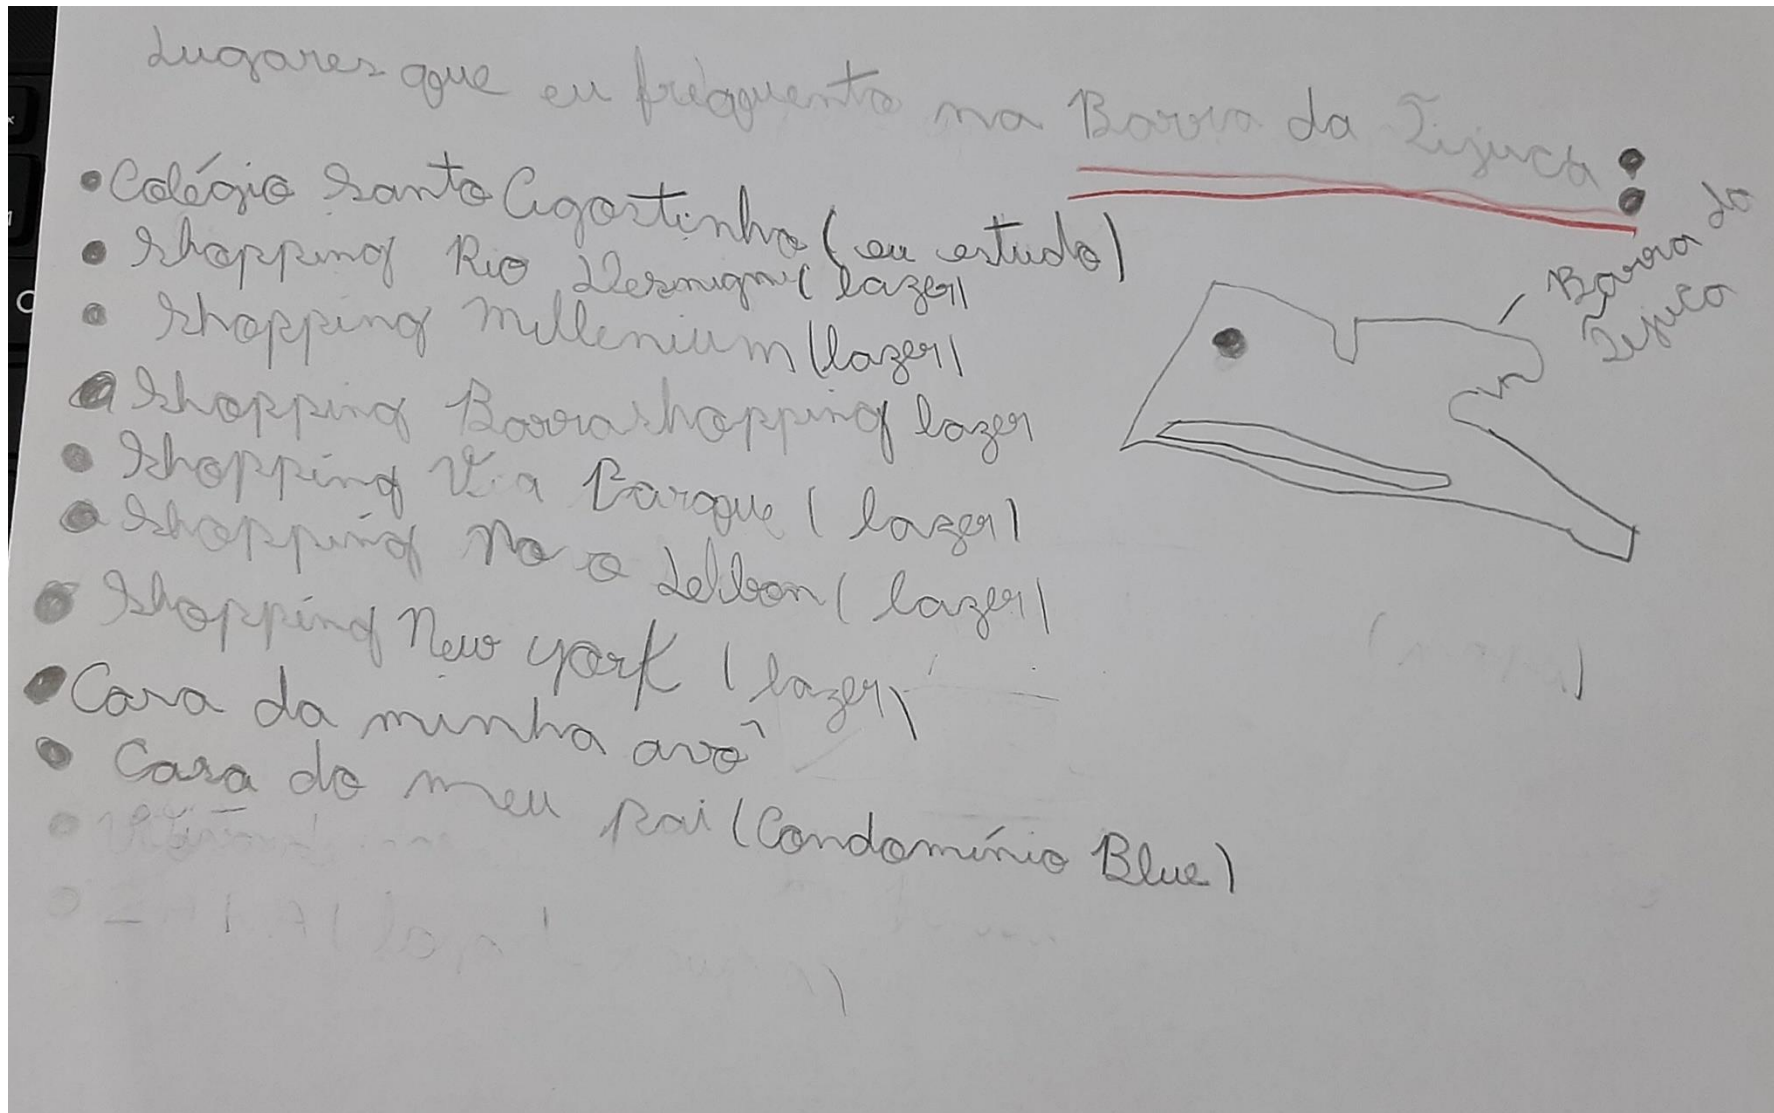 Lugares que eu frequento na Barra da Tijuca:
• Colégio Santo Agostinho (eu estudo)
• Shopping Rio Desnigni (lazer)
• Shopping Millenium (lazer)
• Shopping Barrashopping lazer
• Shopping Via Parque (lazer)
• Shopping No o Leblon (lazer)
• Shopping New york (lazer)
• Casa da minha avó
• Casa do meu pai (Condomínio Blue)
Barra da
Tijuca